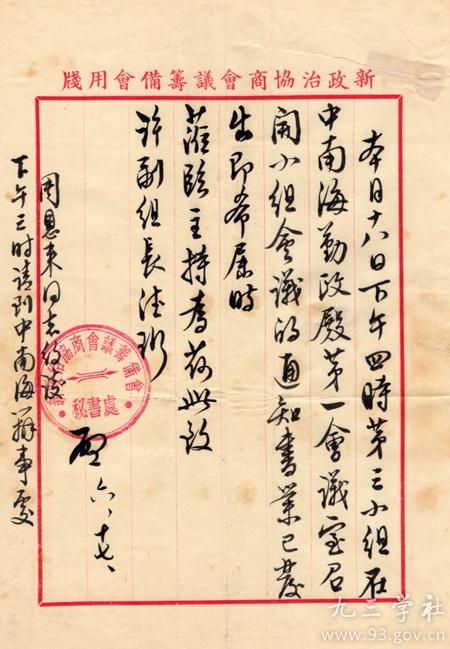 新政治協商會議籌備會用牋
本月十八日下午四時第三小組在
中南海勤政殿第一會議室召
開小組會議的通知書業已發
出即希屆時
蒞臨主持為荷此致
許副組長德珩
啟 六、十七、
新政治協商會議籌備會
秘書處
周恩来同志約談
下午三时请到中南海辦事處
九三学社
www.93.gov.cn